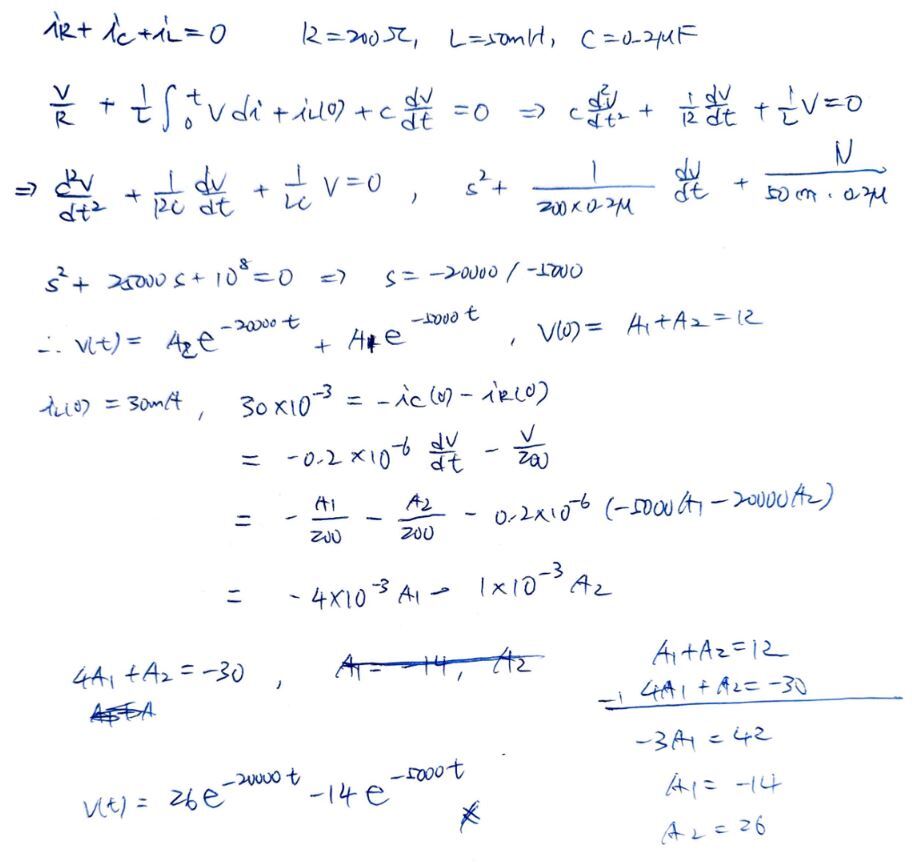 iR + iC + iL = 0    R = 200Ω, L = 50mH, C = 0.2μF
V/R + 1/L ∫₀ᵗ V di + iL(0) + C dV/dt = 0 ⇒ C d²V/dt² + 1/R dV/dt + 1/L V = 0
⇒ d²V/dt² + 1/RC dV/dt + 1/LC V = 0 , s² + 1/(200×0.2μ) dV/dt + N/(50m · 0.2μ)
s² + 25000s + 10⁸ = 0 ⇒ s = -20000 / -5000
∴ V(t) = A₂e^(-20000t) + A₁e^(-5000t) , V(0) = A₁ + A₂ = 12
iL(0) = 30mA , 30×10⁻³ = -iC(0) - iR(0)
= -0.2×10⁻⁶ dV/dt - V/200
= - A₁/200 - A₂/200 - 0.2×10⁻⁶ (-5000A₁ - 20000A₂)
= -4×10⁻³ A₁ - 1×10⁻³ A₂
4A₁ + A₂ = -30 , A₁ = -14, A₂
A₁ + A₂ = 12
-) 4A₁ + A₂ = -30
-3A₁ = 42
A₁ = -14
A₂ = 26
V(t) = 26e^(-20000t) - 14e^(-5000t)